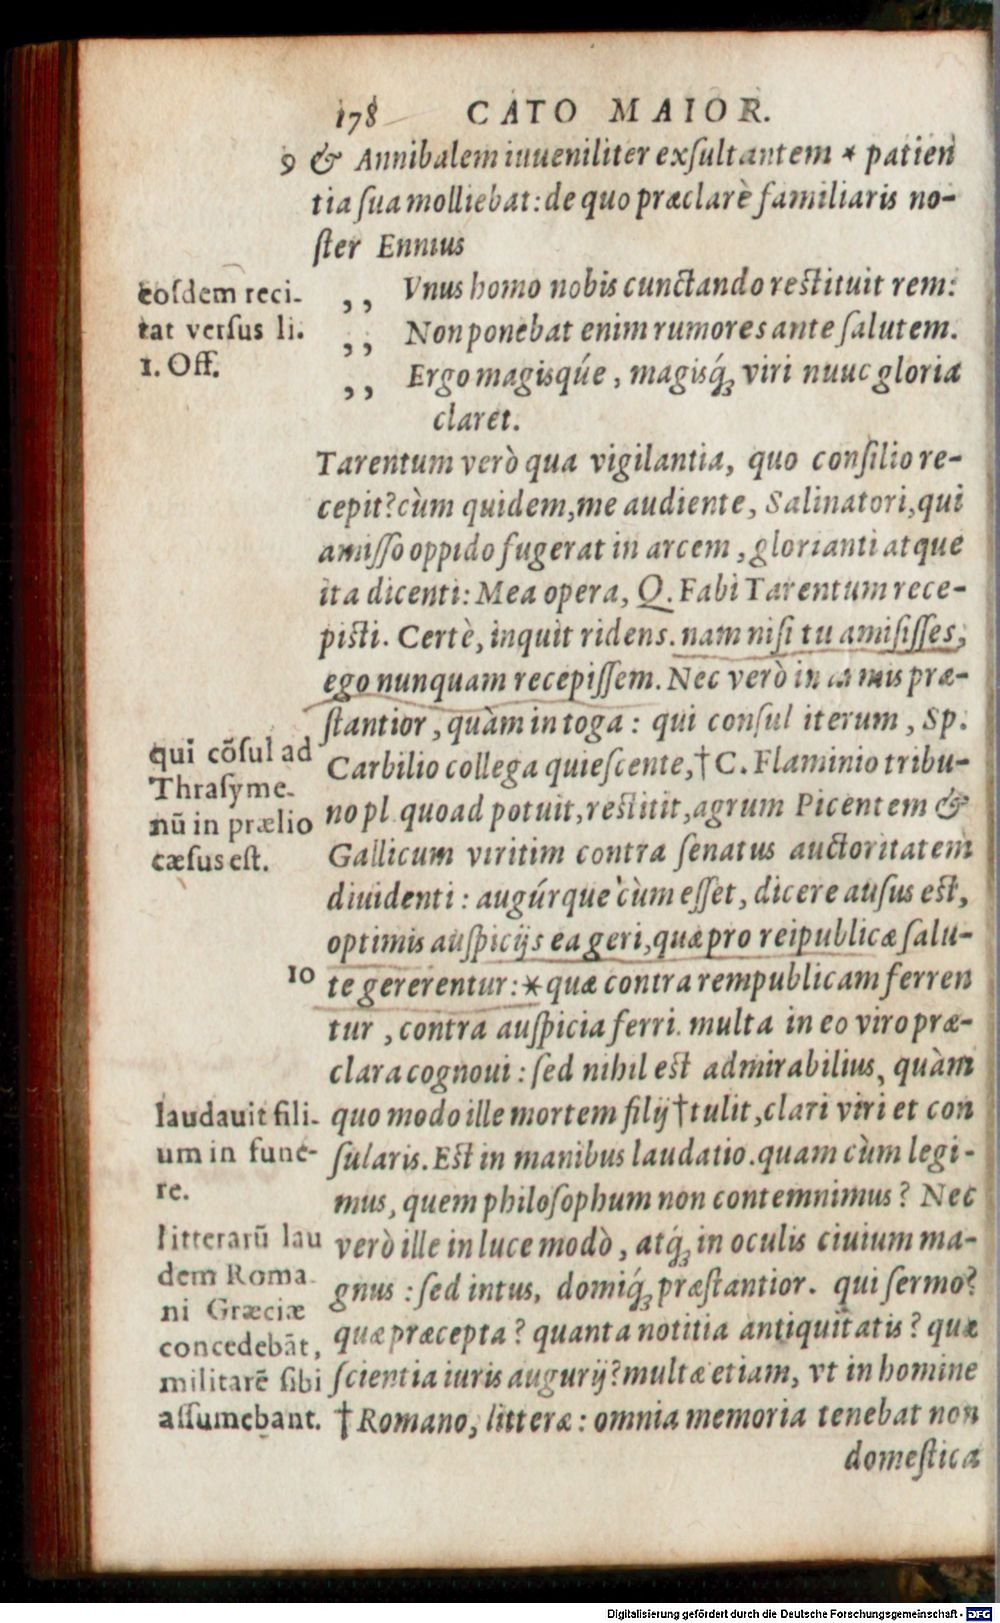 178 CATO MAIOR.
9 & Annibalem iuueniliter exſultantem * patien
tia ſua molliebat: de quo præclarè familiaris no-
ſter Ennius
,, Vnus homo nobis cunctando reſtituit rem:
,, Non ponebat enim rumores ante ſalutem.
,, Ergo magisq́ue, magisq́ꝫ viri nuuc gloria
claret.
eoſdem reci-
tat verſus li.
1. Off.
Tarentum verò qua vigilantia, quo conſilio re-
cepit? cùm quidem, me audiente, Salinatori, qui
amiſſo oppido fugerat in arcem, glorianti atque
ita dicenti: Mea opera, Q. Fabi Tarentum rece-
piſti. Certè, inquit ridens. nam niſi tu amiſiſſes,
ego nunquam recepiſſem. Nec verò in mis præ-
ſtantior, quàm in toga: qui conſul iterum, Sp.
Carbilio collega quieſcente, † C. Flaminio tribu-
no pl. quoad potuit, reſtitit, agrum Picentem &
Gallicum viritim contra ſenatus auctoritatem
diuidenti: augúrque cùm eſſet, dicere auſus eſt,
optimis auſpicijs ea geri, quæ pro reipublicæ ſalu-
10 te gererentur: * quæ contra rempublicam ferren
tur, contra auſpicia ferri. multa in eo viro præ-
clara cognoui: ſed nihil eſt admirabilius, quàm
quo modo ille mortem filij † tulit, clari viri et con
ſularis. Eſt in manibus laudatio. quam cùm legi-
mus, quem philoſophum non contemnimus? Nec
verò ille in luce modò, atq́ꝫ in oculis ciuium ma-
gnus: ſed intus, domiq́ꝫ præſtantior. qui ſermo?
quæ præcepta? quanta notitia antiquitatis? quæ
ſcientia iuris augurij? multæ etiam, vt in homine
† Romano, litteræ: omnia memoria tenebat non
domeſtica
qui cõſul ad
Thraſyme-
nũ in prælio
cæſus eſt.
laudauit fili-
um in fune-
re.
litterarũ lau
dem Roma
ni Græciæ
concedebãt,
militarẽ ſibi
aſſumebant.
Digitalisierung gefördert durch die Deutsche Forschungsgemeinschaft - DFG